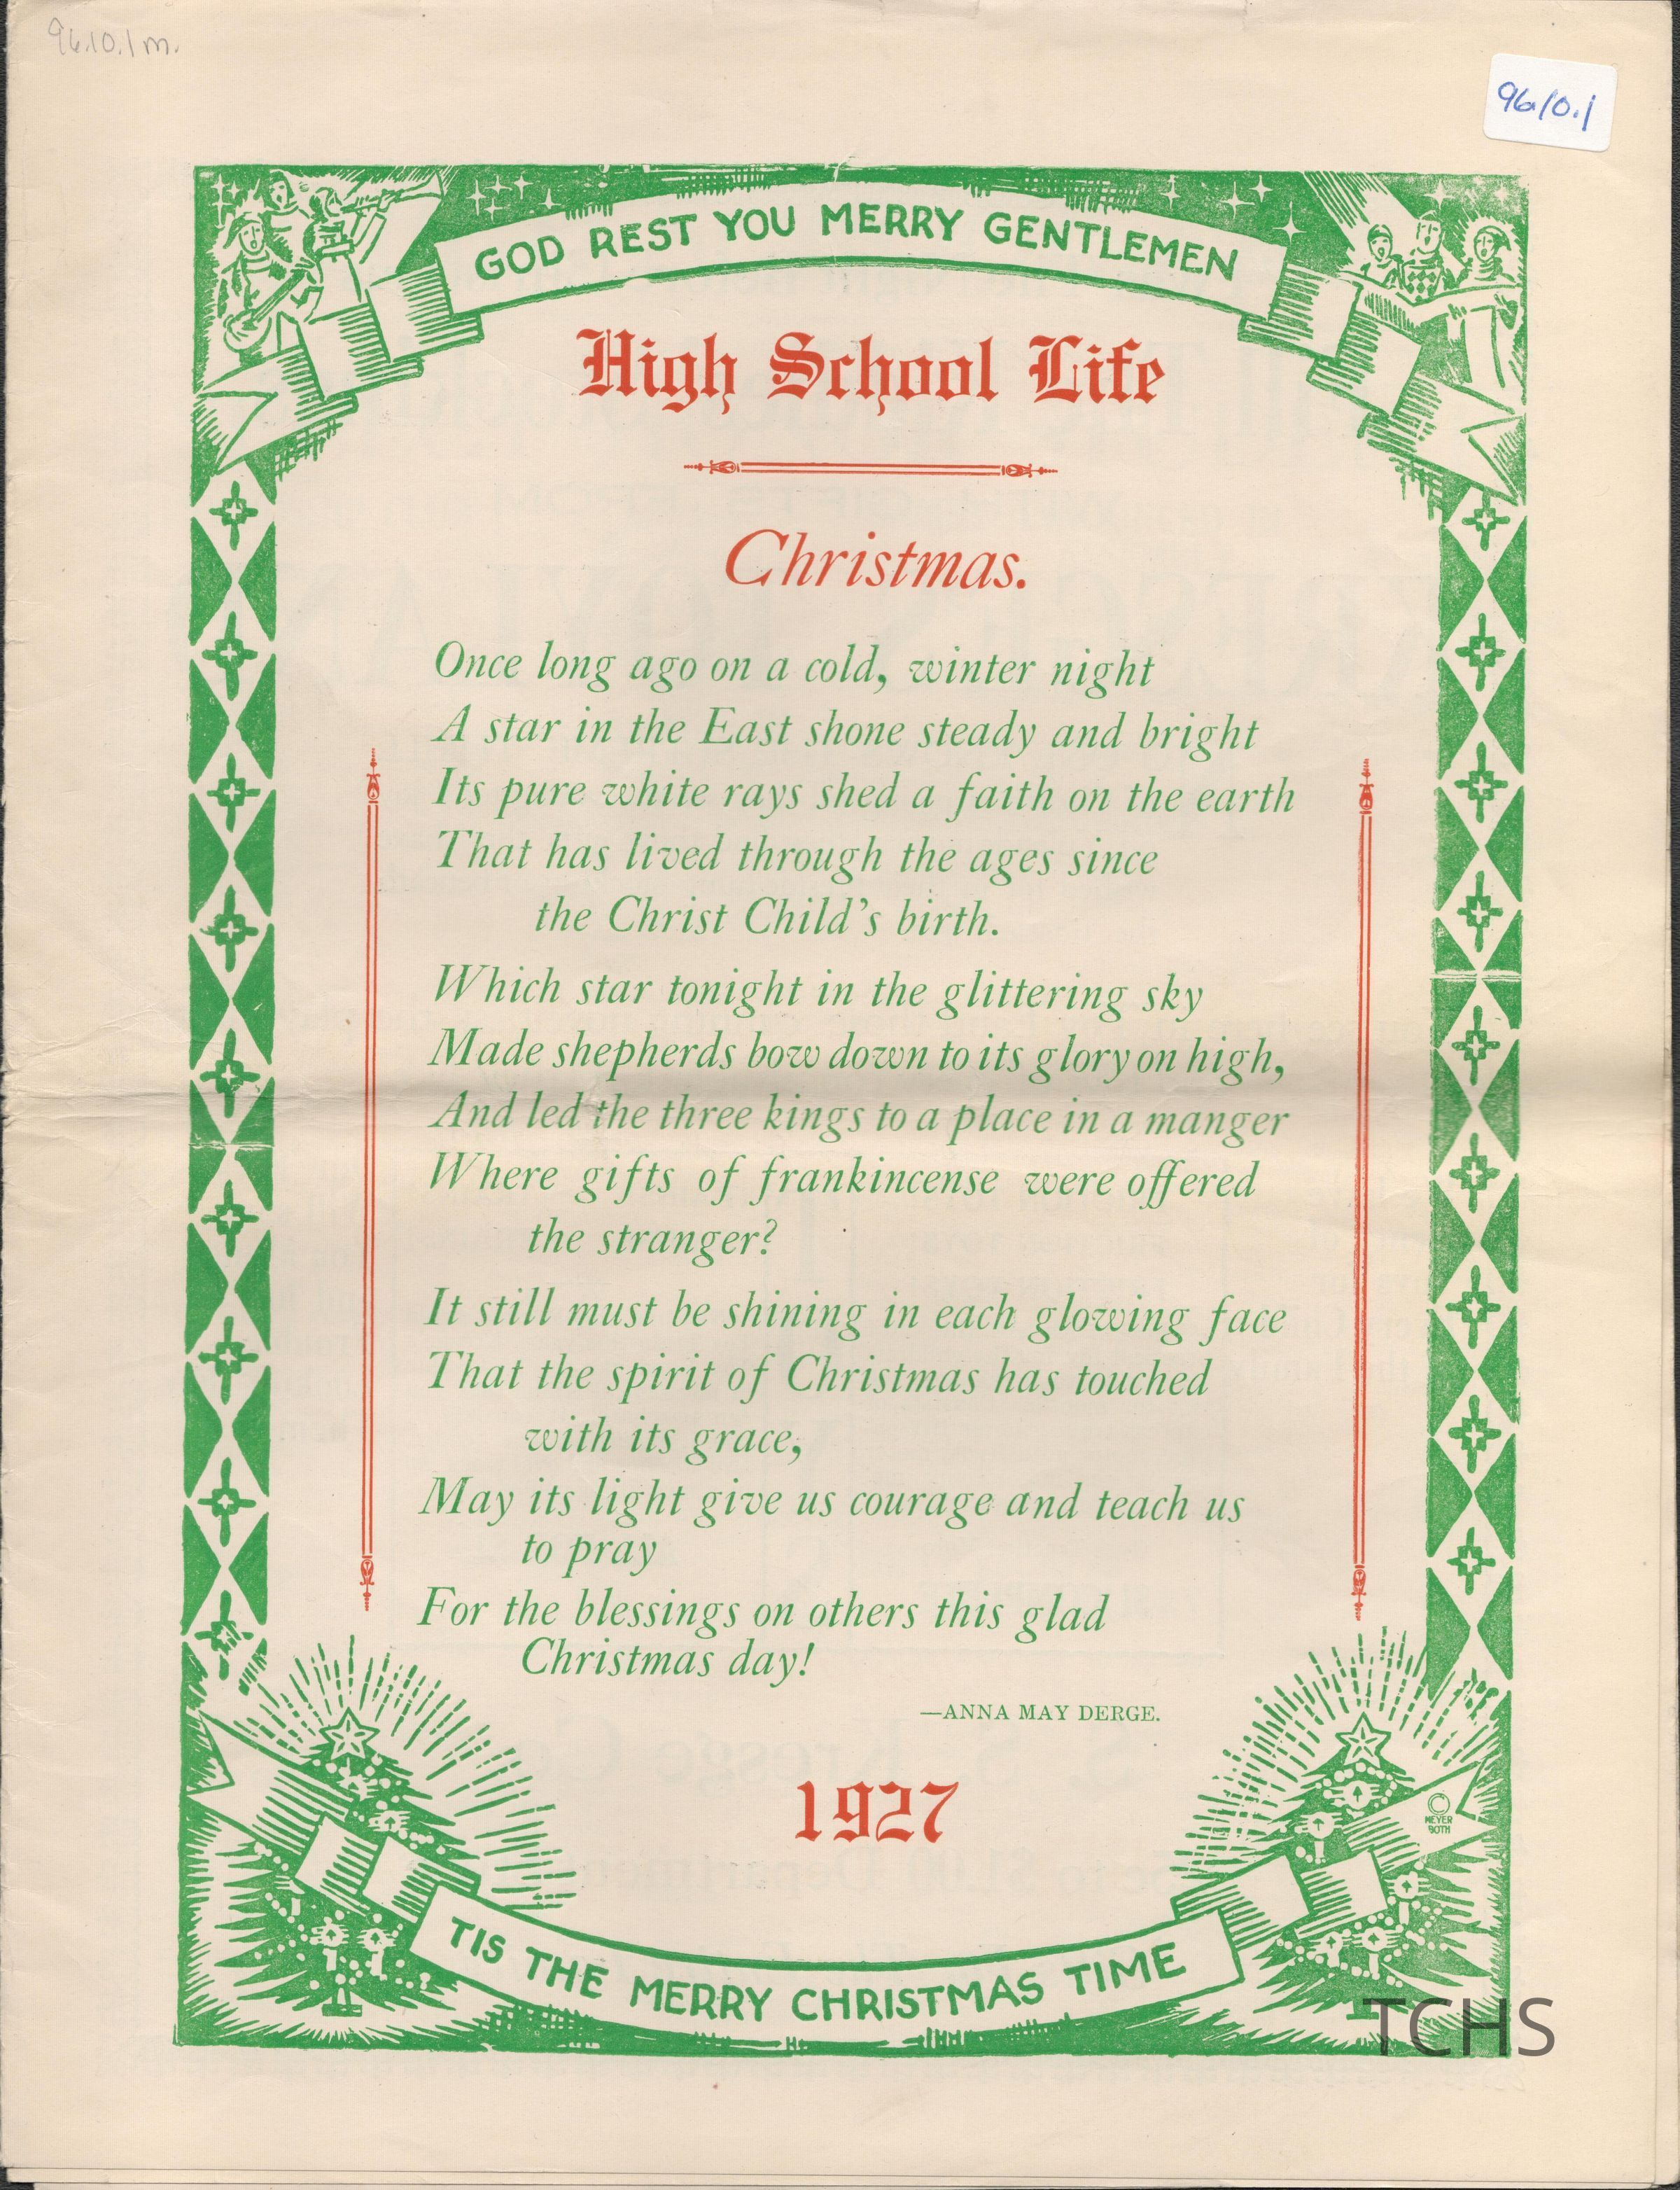 96.10.1m.
96.10.1
GOD REST YOU MERRY GENTLEMEN
High School Life
Christmas.
Once long ago on a cold, winter night
A star in the East shone steady and bright
Its pure white rays shed a faith on the earth
That has lived through the ages since
the Christ Child's birth.
Which star tonight in the glittering sky
Made shepherds bow down to its glory on high,
And led the three kings to a place in a manger
Where gifts of frankincense were offered
the stranger?
It still must be shining in each glowing face
That the spirit of Christmas has touched
with its grace,
May its light give us courage and teach us
to pray
For the blessings on others this glad
Christmas day!
—ANNA MAY DERGE.
1927
© MEYER
BOTH
TIS THE MERRY CHRISTMAS TIME
TCHS